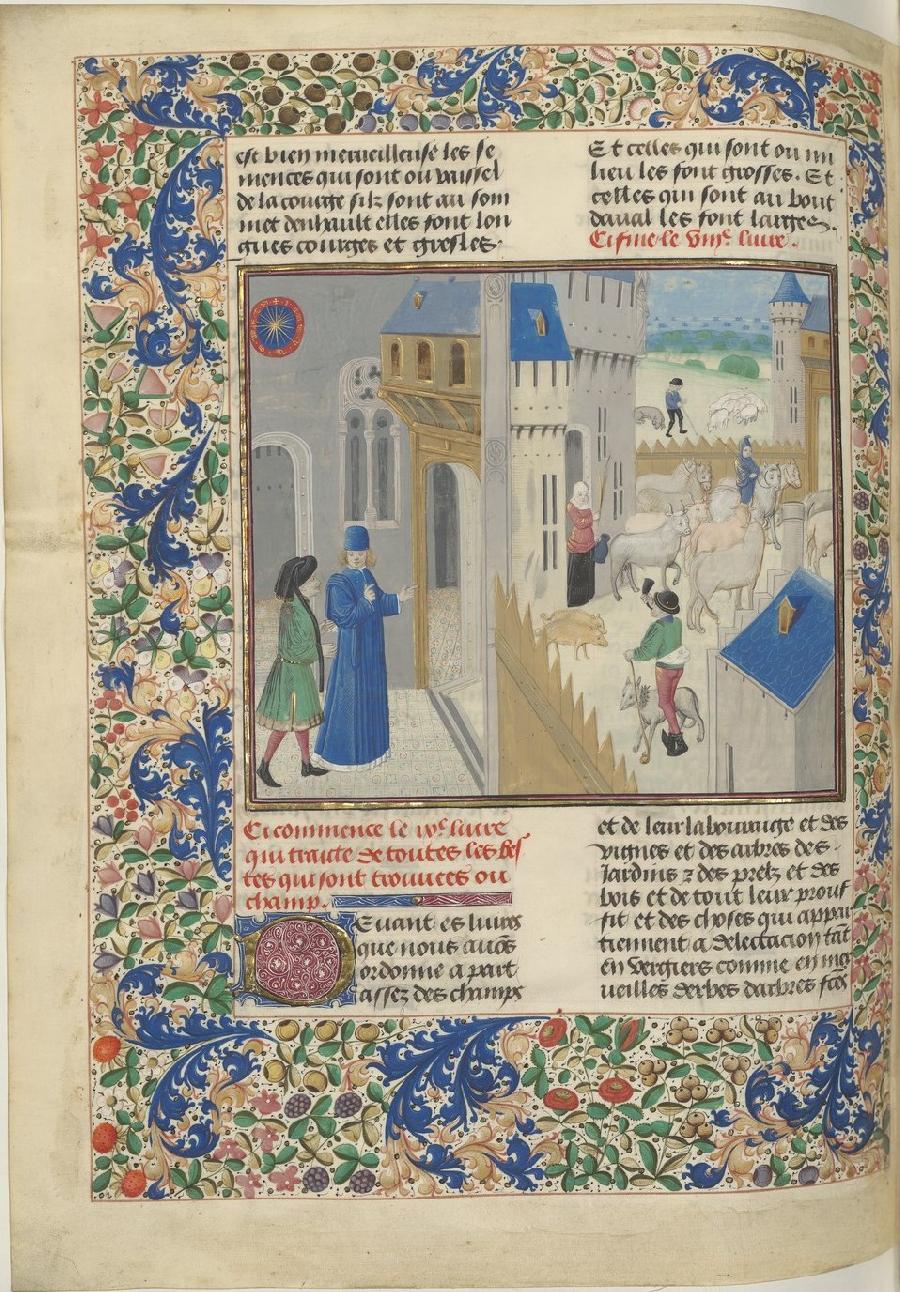 est bien merveilleuse les se
mences qui sont ou vaissel
de la courge silz sont au som
met denhault elles font lon
gues courges et gresles.
Et celles qui sont ou mi
lieu les font grosses. Et
celles qui sont au bout
daval les font larges.
Ci fine le viiie livre.
Ci commence le ixe livre
qui traicte de toutes les bes
tes qui sont trouvees ou
champ.
Devant es livres
que nous avons
ordonne a part
assez des champs
et de leur labourage et des
vignes et des arbres des
Jardins z des prelz et des
bois et de tout leur prouf
fit et des choses qui appar
tiennent a delectacion tat
en vergiers comme en mer
veilles derbes darbres fces